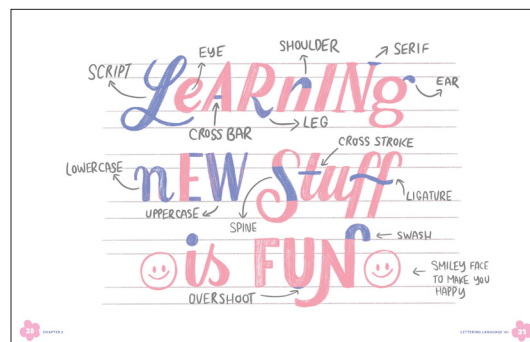 SHOULDER
SERIF
EYE
SCRIPT
LeARnINg
EAR
CROSS BAR
LEG
CROSS STROKE
LOWERCASE
nEW Stuff
LIGATURE
UPPERCASE
SPINE
SWASH
is FUN
SMILEY FACE
TO MAKE YOU
HAPPY
OVERSHOOT
CHAPTER 2
LETTERING LANGUAGE 101
21